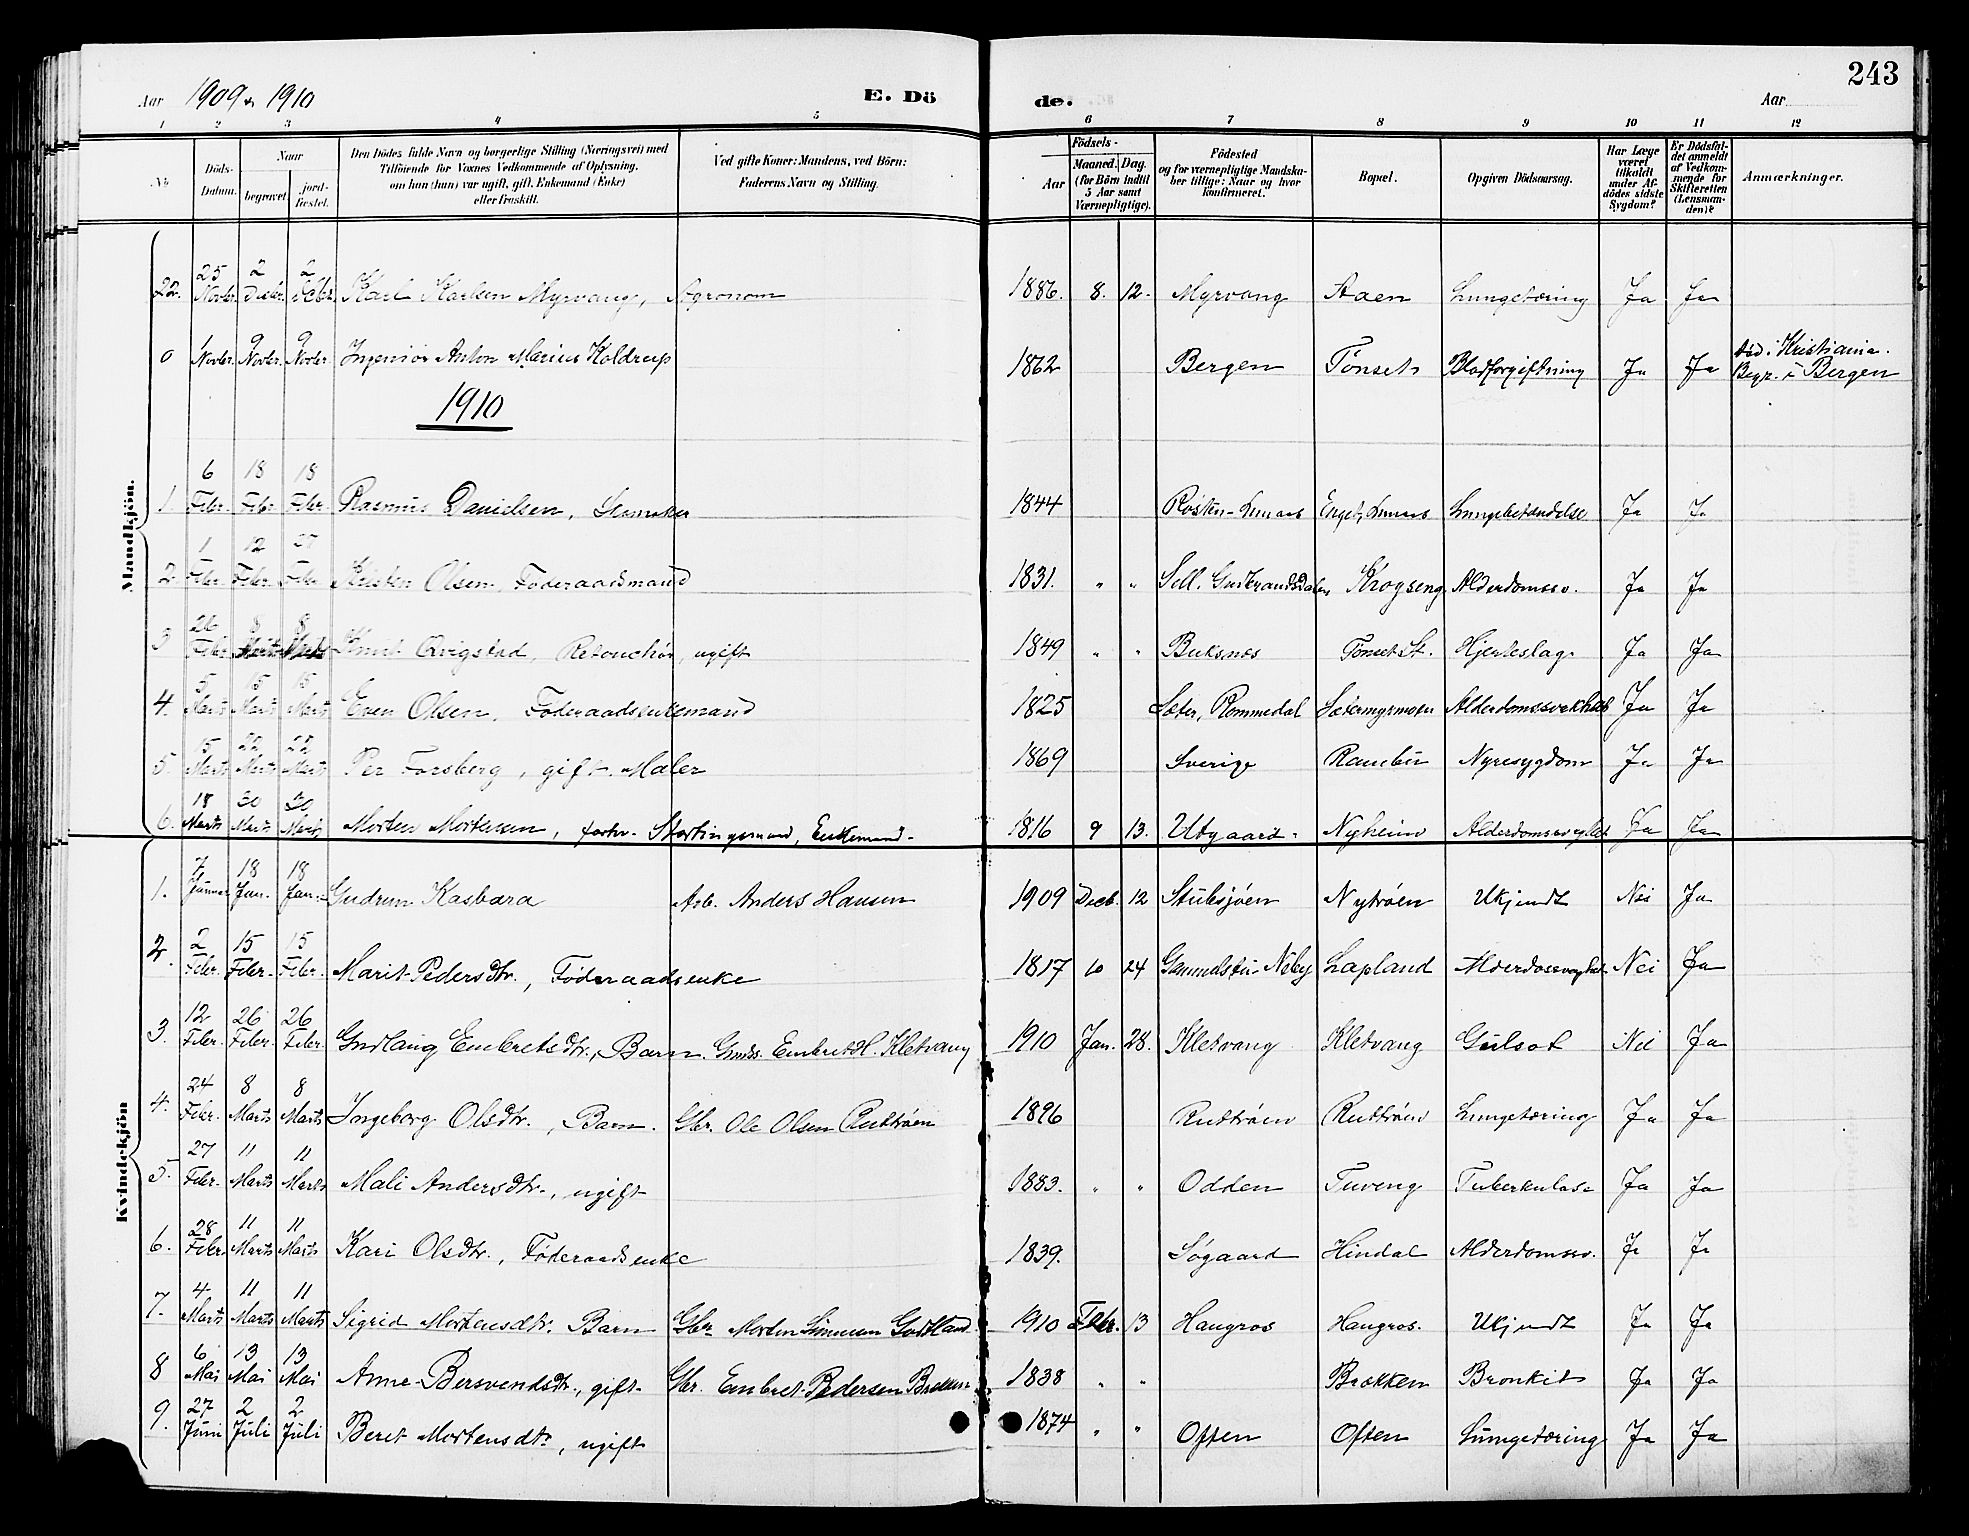 Aar 1909 & 1910
E. Dö
de.
Aar
243
1 2 3 4 5 6 7 8 9 10 11 12
No
Döds-Datum.
Naar
begravet.
jordfæstet.
Den Dödes fulde Navn og borgerlige Stilling (Næringsvei) med
Tilföiende for Voxnes Vedkommende af Oplysning,
om han (hun) var ugift, gift, Enkemand (Enke)
eller fraskilt.
Ved gifte Koner: Mandens, ved Börn:
Faderens Navn og Stilling.
Födsels-
Aar
Maaned. Dag.
(for Börn indtil
5 Aar samt
Værnepligtige).
Födested
og for værnepligtige Mandska-
ber tillige: Naar og hvor
konfirmeret.
Bopæl.
Opgiven Dödsaarsag.
Har Læge
været
tilkaldt
under Af-
dödes sidste
Sygdom?
Er Dödsfal-
det anmeldt
af Vedkom-
mende for
Skifteretten
(Lensman-
den)?
Anmærkninger.
Mandkjön.
22. 25 Novbr. 2 Decbr. 2 Febr. Karl Karlsen Myrvang, Agronom 1886. 8. 12. Myrvang Aaen Lungetæring Ja Ja
0 1 Novbr. 9 Novbr. 9 Novbr. Ingeniør Anton Marius Koldrup 1862 Bergen Tönset Blodforgiftning Ja Ja Död i Kristiania. Begr. i Bergen
1910
1 6 Febr. 18 Febr. 18 Febr. Rasmus Danielsen, Skomaker 1844 Enget, Lungebetændelse Ja Ja
2 1 Febr. 12 Febr. 27 Febr. Kristen Olsen, Föderaadsmand 1831. " " Sell. Gudbrandsdalen Krogseng Alderdomssv. Ja Ja
3 26 Febr. 8 Marts 8 Marts Knut Qvigstad, Retouchör, ugift 1849 " " Buksnæs Tönset St. Hjerteslag Ja Ja
4. 5 Marts 15 Marts 15 Marts Even Olsen, Föderaadsenkemand 1825 Sæter, Rommedal Sætermyrmoen Alderdomssvækhet Ja Ja
5. 15 Marts 22 Marts 22 Marts Per Forsberg, gift. Maler 1869 Sverige Rambu Nyresygdom Ja Ja
6. 18 Marts 30 Marts 30 Marts Morten Mortensen, forhv. Stortingsmand, Enkemand. 1816 9 13. Utgaard. Nyheim Ja Ja
Kvindekjön
1. 7 Januar 18 Jan. 18 Jan. Gudrun Kasbara Arb. Anders Hansen 1909 Decb. 12 Stubsjöen Nytröen Ukjendt Nei Ja
2. 2 Febr. 15 Febr. 15 Febr. Marit Pedersdtr., Föderaadsenke 1817 10 24 Neby Lapland Nei Ja
3. 12 Febr. 26 Febr. 26 Febr. Gudlaug Embretsdtr., Barn. Embret H. Kletvang 1910 Jan. 28. Kletvang Kletvang Gulsot Nei Ja
4. 24 Febr. 8 Marts 8 Marts Ingeborg Olsdtr., Barn. Gbr. Ole Olsen Rudtröen 1896 Rudtröen Rudtröen Lungetæring Ja Ja
5. 27 Febr. 11 Marts 11 Marts Mali Andersdtr., ugift 1883. " " Odden Tuveng Tuberkulose Ja Ja
6. 28 Febr. 11 Marts 11 Marts Kari Olsdtr., Föderaadsenke 1839. Sögaard Hindal Alderdomssv. Ja Ja
7. 4 Marts 11 Marts 11 Marts Sigrid Mortensdtr. Barn Gbr Morten Simensen Godtland 1910 Febr. 13 Haugros Haugros. Ukjendt Ja Ja
8 6 Mai 13 Mai 13 Mai Anne Bersvendsdtr., gift. Gbr. Embret Pedersen Brækken 1838 " " Brækken Bronkit Ja Ja
9. 27 Juni 2 Juli 2 Juli Beret Mortensdtr, ugift 1874 " " Often Often Lungetæring Ja Ja